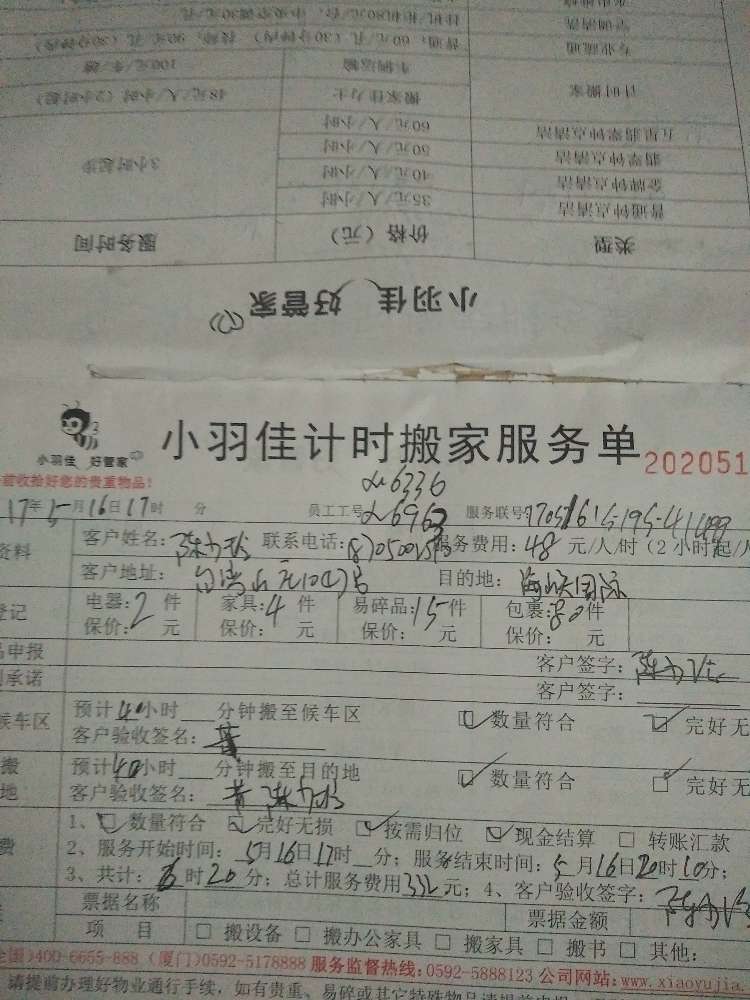 挂机80元/台，柜机
空调清洗
普通：60元/孔（30分钟内） 技修：90元/孔（30分钟内）
专业疏通
车辆运输 100元/车/趟
计时搬家 搬家佳力士 48元/人/小时（2小时起）
五星翡翠钟点清洁 60元/人/小时
翡翠钟点清洁 50元/人/小时
金牌钟点清洁 40元/人/小时
普通钟点清洁 35元/人/小时 3小时起步
类型 价格（元） 服务时间
小羽佳 好管家
小羽佳 好管家
小羽佳计时搬家服务单 202051
前收拾好您的贵重物品！
6336
17年5月16日17时 分 员工工号 服务联号
资料 客户姓名： 联系电话： 服务费用：48 元/人/时（2小时起/人
客户地址： 目的地：海峡国际
登记 电器：2 件 家具：4 件 易碎品：15件 包裹：80件
保价： 元 保价： 元 保价： 元 保价： 元
申报 客户签字：
承诺 客户签字：
候车区 预计40小时 分钟搬至候车区 数量符合 完好无
客户验收签名：
搬 预计40小时 分钟搬至目的地 数量符合 完好无
地 客户验收签名：
1、 数量符合 完好无损 按需归位 现金结算 转账汇款
费 2、服务开始时间：5月16日17时 分；服务结束时间：5月16日20时10分；
3、共计： 时20分；总计服务费用332元；4、客户验收签字：
票据名称 票据金额
项 目 搬设备 搬办公家具 搬家具 搬书 其他：
全国）400-6655-888（厦门）0592-5178888 服务监督热线：0592-5888123 公司网站：www.xiaoyujia.
请提前办理好物业通行手续，如有贵重、易碎或其它特殊物品请提前申报